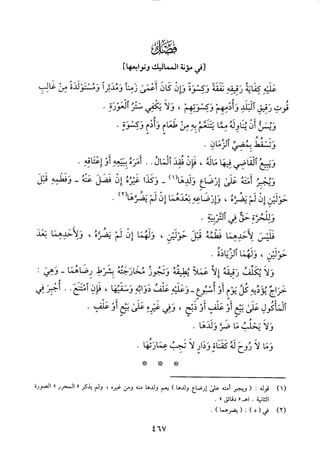 فَصْلٌ
[في مؤنة المماليك وتوابعها]
عَلَيْهِ كِفَايَةُ رَقِيقِهِ نَفَقَةً وَكِسْوَةً وَإِنْ كَانَ أَعْمَىٰ زَمِنًا وَمُدَبَّرًا وَمُسْتَوْلَدَةً مِنْ غَالِبِ
قُوتِ رَقِيقِ ٱلْبَلَدِ وَأُدْمِهِمْ وَكِسْوَتِهِمْ ، وَلَا يَكْفِي سَتْرُ ٱلْعَوْرَةِ .
وَيُسَنُّ أَنْ يُنَاوِلَهُ مِمَّا يَتَنَعَّمُ بِهِ مِنْ طَعَامٍ وَأُدْمٍ وَكِسْوَةٍ .
وَتَسْقُطُ بِمُضِيِّ ٱلزَّمَانِ .
وَيَبِيعُ ٱلْقَاضِي فِيهَا مَالَهُ ، فَإِنْ فُقِدَ ٱلْمَالُ . . أَمَرَهُ بِبَيْعِهِ أَوْ إِعْتَاقِهِ .
وَيُجْبِرُ أَمَتَهُ عَلَىٰ إِرْضَاعِ وَلَدِهَا(١) - وَكَذَا غَيْرُهُ إِنْ فَضَلَ عَنْهُ - وَفَطْمِهِ قَبْلَ
حَوْلَيْنِ إِنْ لَمْ يَضُرَّهُ ، وَإِرْضَاعِهِ بَعْدَهُمَا إِنْ لَمْ يَضُرَّهَا(٢) .
وَلِلْحُرَّةِ حَقٌّ فِي ٱلتَّرْبِيَةِ .
فَلَيْسَ لِأَحَدِهِمَا فَطْمُهُ قَبْلَ حَوْلَيْنِ ، وَلَهُمَا إِنْ لَمْ يَضُرَّهُ ، وَلِأَحَدِهِمَا بَعْدَ
حَوْلَيْنِ ، وَلَهُمَا ٱلزِّيَادَةُ .
وَلَا يُكَلِّفُ رَقِيقَهُ إِلَّا عَمَلًا يُطِيقُهُ وَتَجُوزُ مُخَارَجَتُهُ بِشَرْطِ رِضَاهُمَا - وَهِيَ :
خَرَاجٌ يُؤَدِّيهِ كُلَّ يَوْمٍ أَوْ أُسْبُوعٍ - وَعَلَيْهِ عَلْفُ دَوَابِّهِ وَسَقْيُهَا ، فَإِنِ ٱمْتَنَعَ . . أُجْبِرَ فِي
ٱلْمَأْكُولِ عَلَىٰ بَيْعٍ أَوْ عَلْفٍ أَوْ ذَبْحٍ ، وَفِي غَيْرِهِ عَلَىٰ بَيْعٍ أَوْ عَلْفٍ .
وَلَا يَحْلُبُ مَا ضَرَّ وَلَدَهَا .
وَمَا لَا رُوحَ لَهُ كَقَنَاةٍ وَدَارٍ لَا تَجِبُ عِمَارَتُهَا .
* * *
(١) قوله : ( ويجبر أمته على إرضاع ولدها ) يعم ولدها منه ومن غيره ، ولم يذكر « المحرر » الصورة
الثانية . اهـ « دقائق » .
(٢) في ( د ) : ( يضرهما ) .
٤٦٧